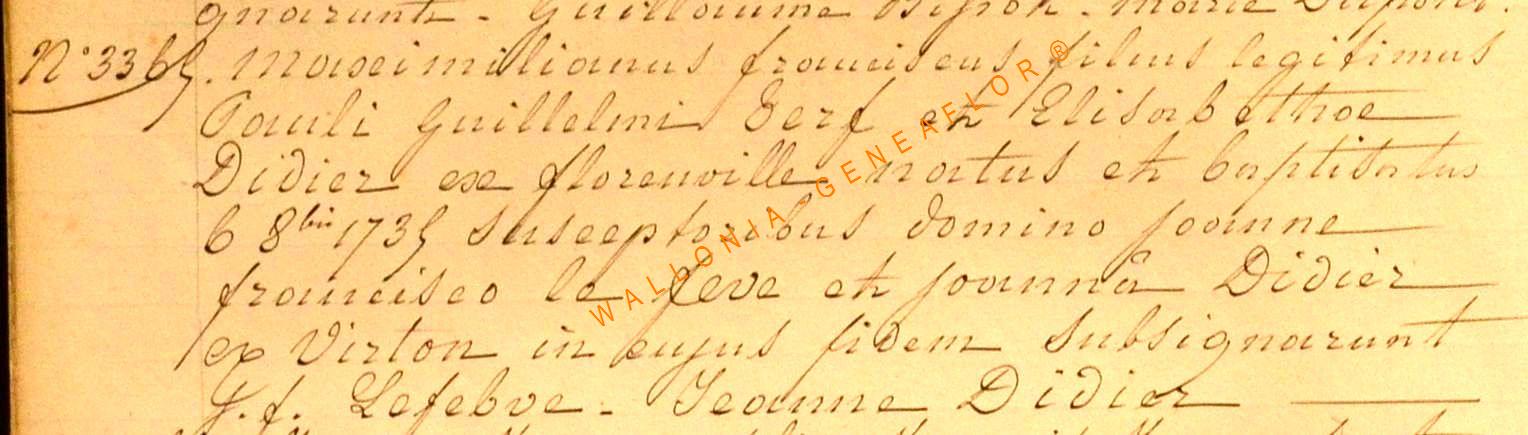 gnarunt - Guillaume - Marie Dupont.
N° 3365. Maximilianus franciscus filius legitimus
Pauli Guillelmi Serf et Elisabethae
Didier ex florenville natus et baptisatus
6 8bris 1735 susceptoribus domino joanne
francisco le feve et joannâ Didier
ex Virton in cujus fidem subsignarunt
J. f. Lefebve - Jeanne Didier
WALLONIA-GENEAFLOR®